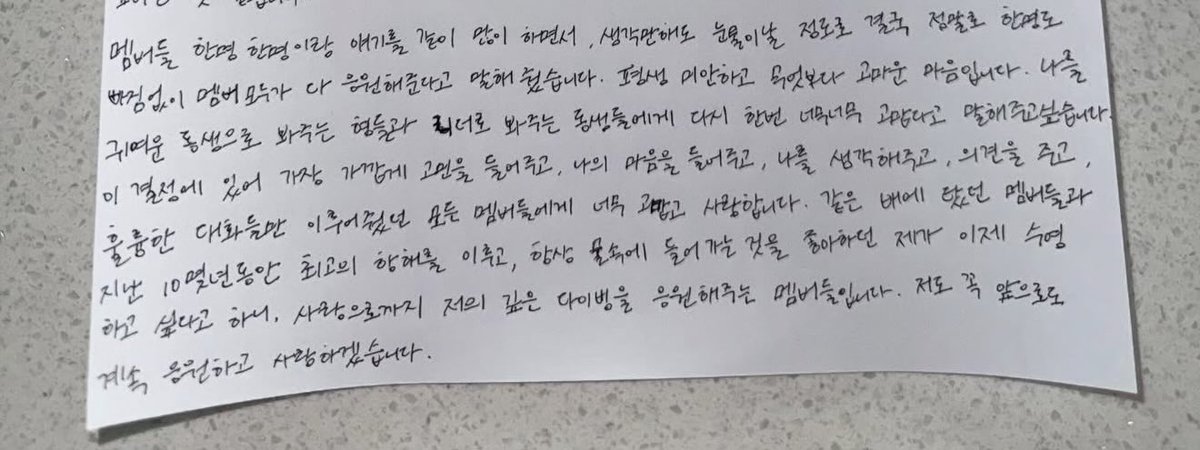 멤버들 한명 한명이랑 얘기를 같이 많이 하면서, 생각만해도 눈물이날 정도로 결국 정말로 한명도
빠짐없이 멤버 모두가 다 응원해준다고 말해 줬습니다. 평생 미안하고 무엇보다 고마운 마음입니다. 나를
귀여운 동생으로 봐주는 형들과 리더로 봐주는 동생들에게 다시 한번 너무너무 고맙다고 말해주고싶습니다.
이 결정에 있어 가장 가깝게 고민을 들어주고, 나의 마음을 들어주고, 나를 생각해주고, 의견을 주고,
훌륭한 대화들만 이루어줬던 모든 멤버들에게 너무 고맙고 사랑합니다. 같은 배에 탔던 멤버들과
지난 10몇년동안 최고의 항해를 이루고, 항상 물속에 들어가는 것을 좋아하던 제가 이제 수영
하고 싶다고 하니, 사랑으로까지 저의 깊은 다이빙을 응원해주는 멤버들입니다. 저도 꼭 앞으로도
계속 응원하고 사랑하겠습니다.